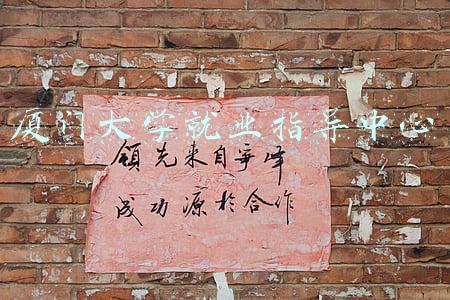 厦门大学就业指导中心
领先来自争峰
成功源于合作